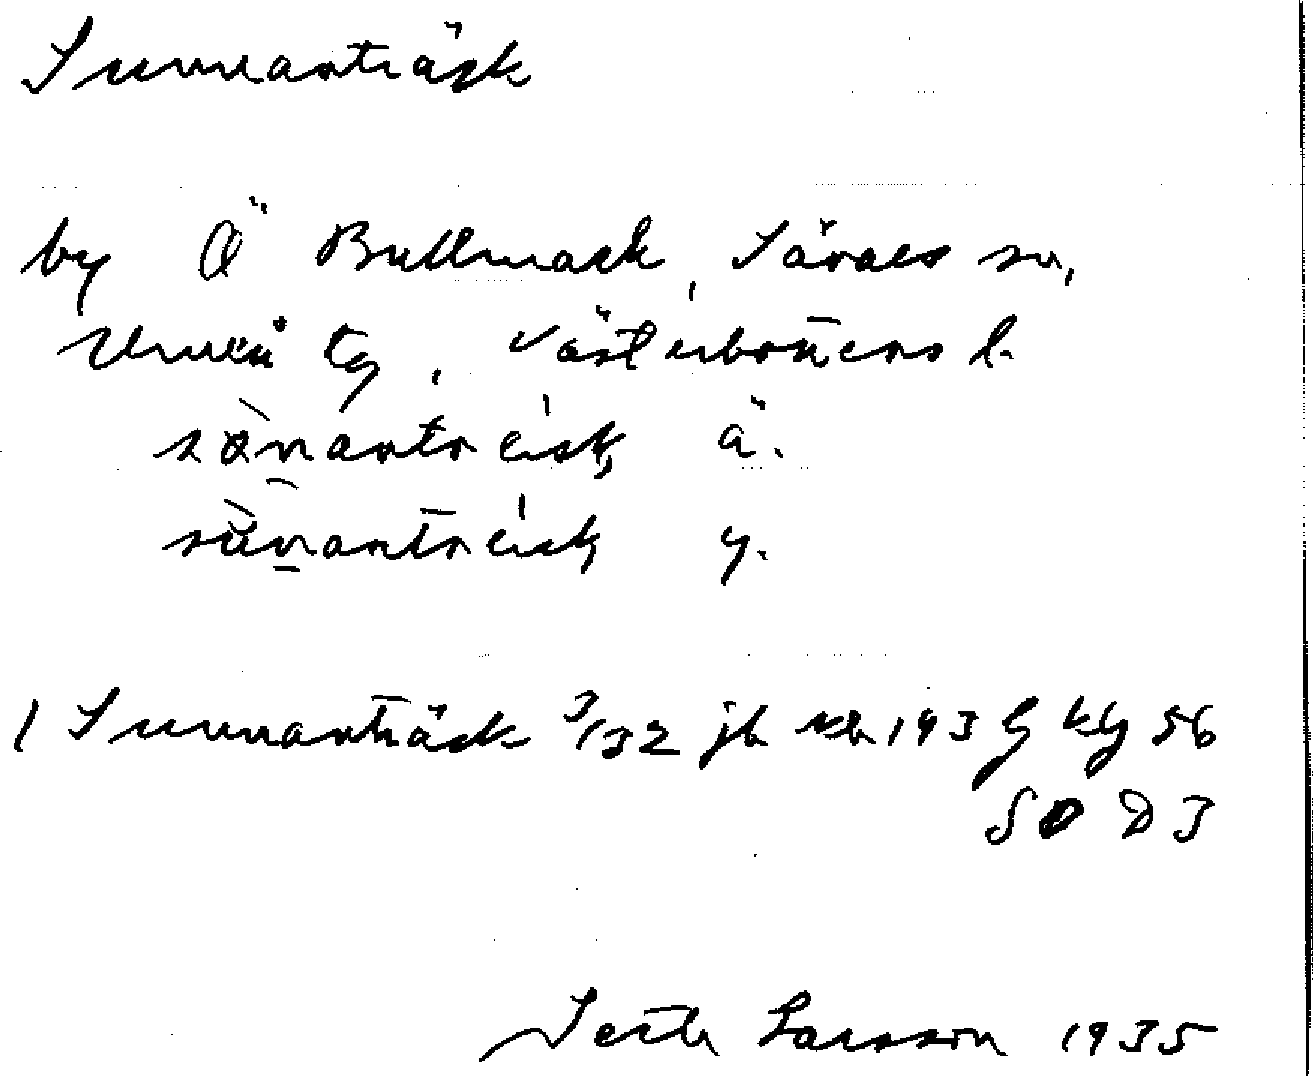 Sunnanträsk
by Ö Bullmark, Sävars sn,
Umeå tg, Västerbottens l.
sö̀nantrésk ä.
sù̄nantrésk y.
1 Sunnanträsk 3/32 jb 193 G kG 56
SO D3
Seth Larsson 1935